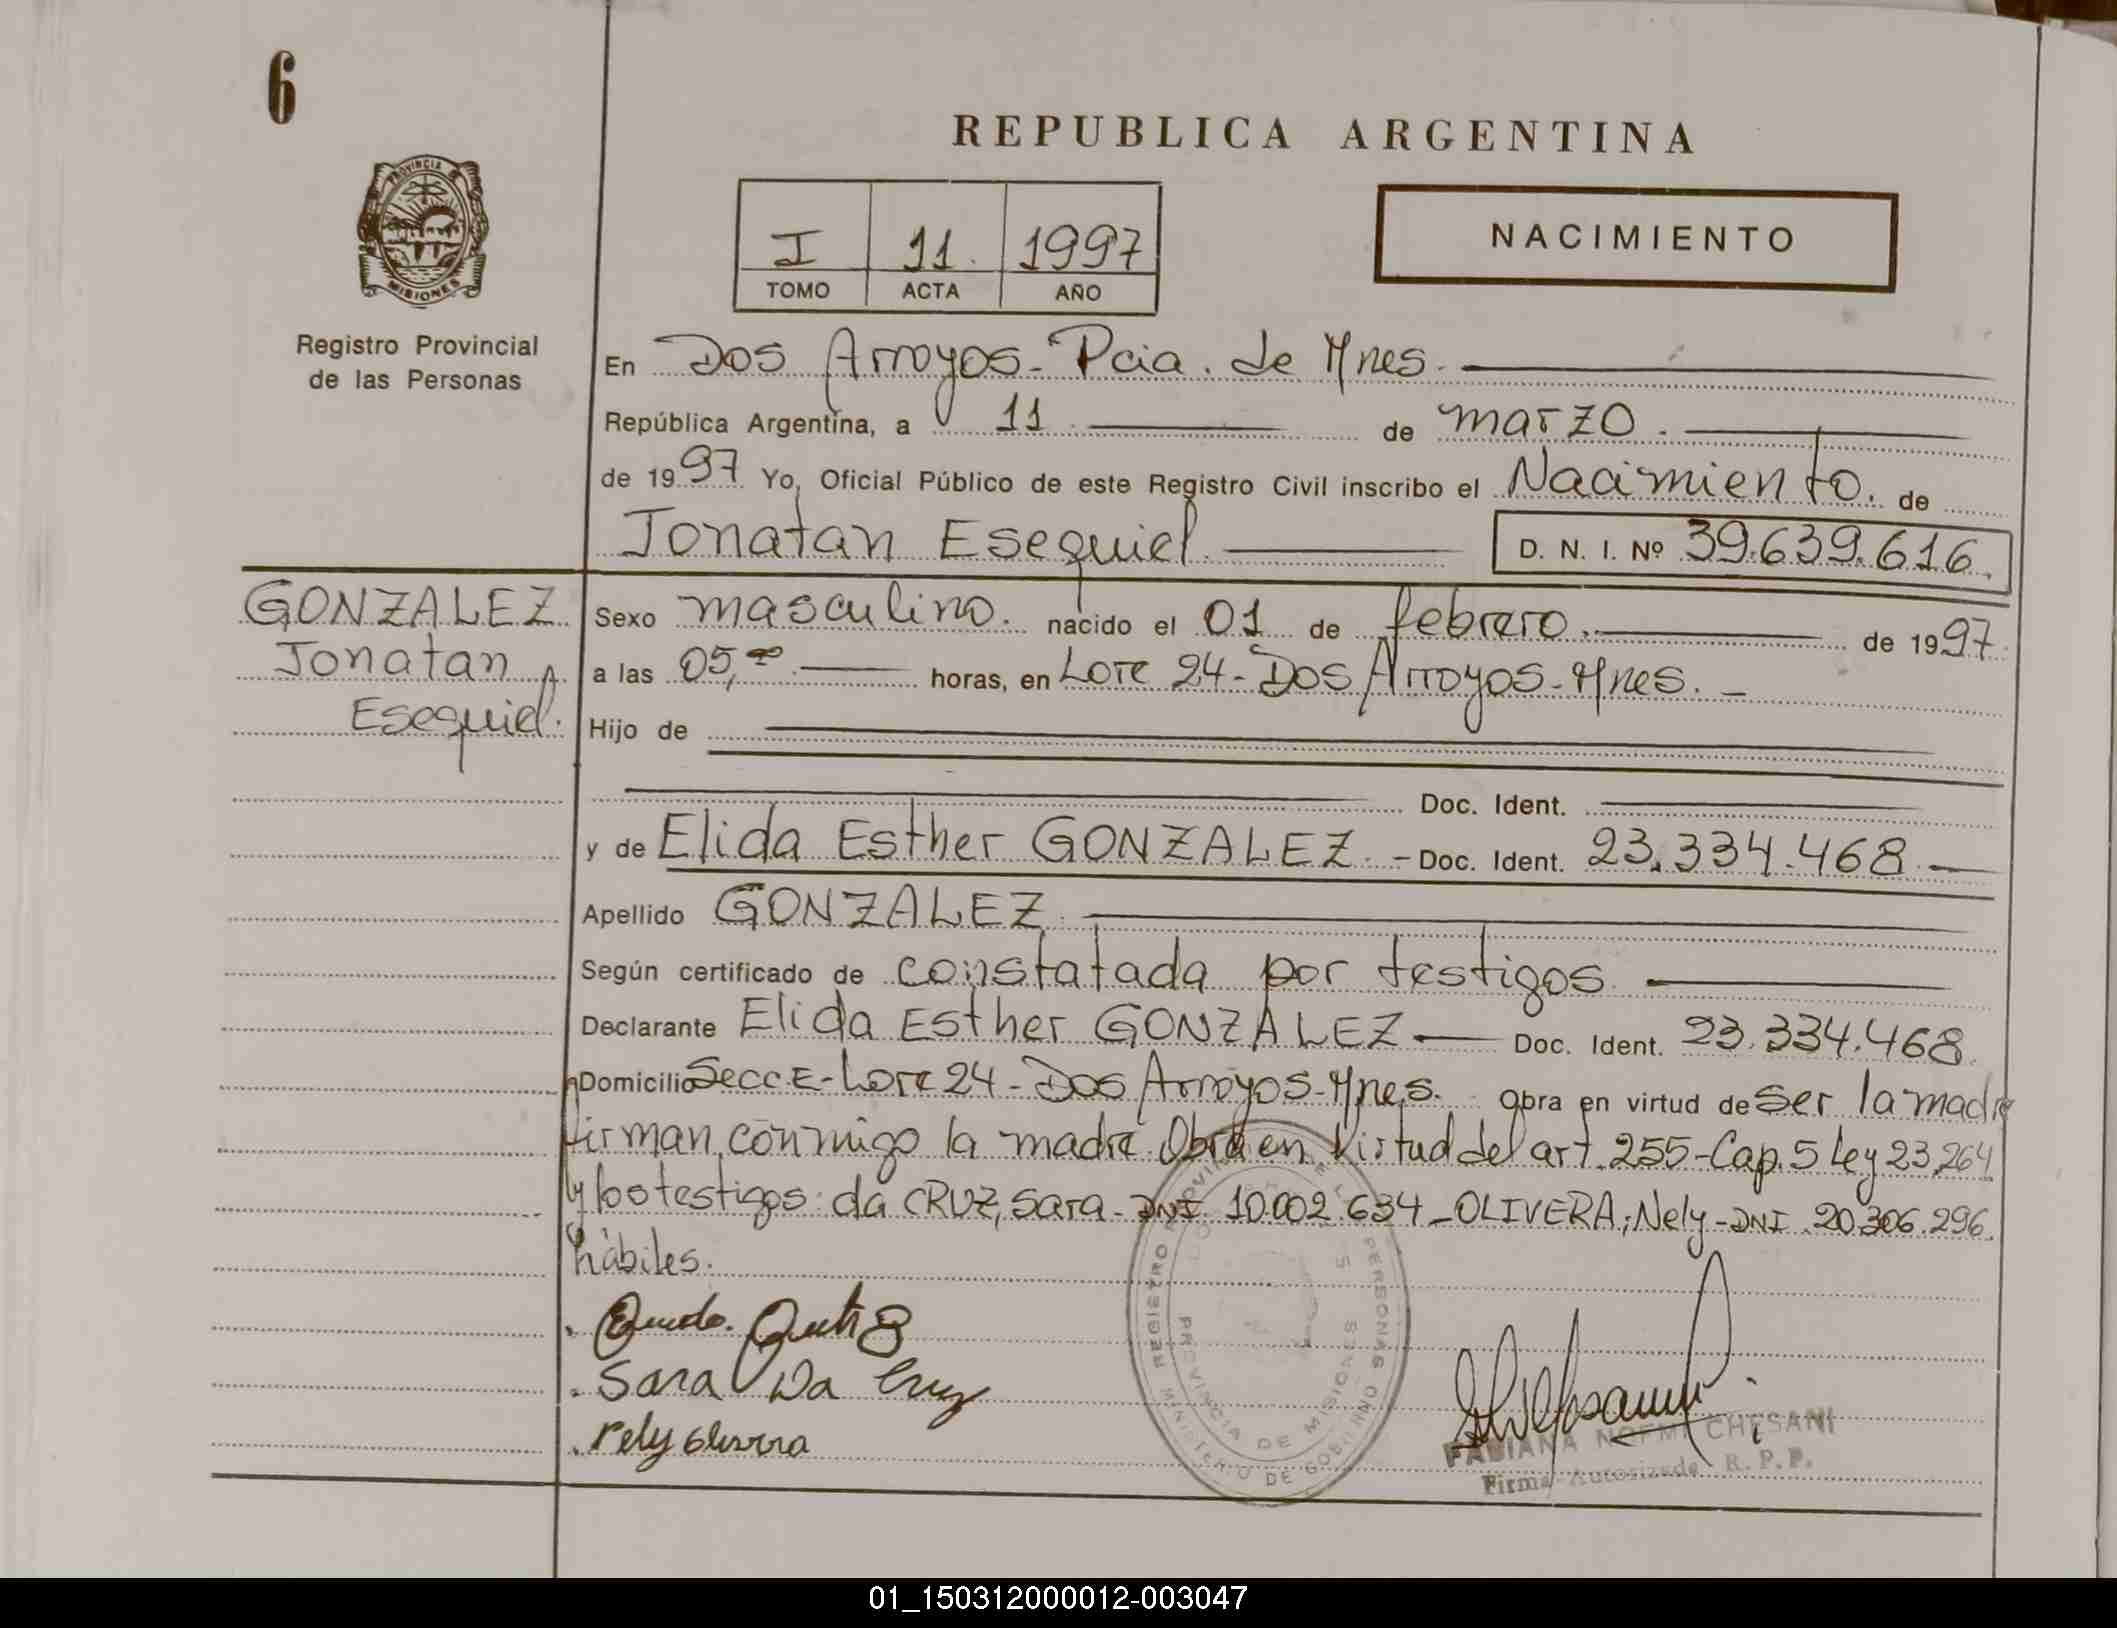 6
REPUBLICA ARGENTINA
PROVINCIA DE
MISIONES
Registro Provincial
de las Personas
I 11. 1997
TOMO ACTA AÑO
NACIMIENTO
En Dos Arroyos - Pcia. de Mnes.
República Argentina, a 11 de marzo.
de 1997 Yo, Oficial Público de este Registro Civil inscribo el Nacimiento. de
Jonatan Esequiel D. N. I. Nº 39.639.616.
GONZALEZ
Jonatan
Esequiel.
Sexo masculino. nacido el 01 de febrero. de 1997.
a las 05,00 horas, en Lote 24 - Dos Arroyos - Mnes. -
Hijo de
Doc. Ident.
y de Elida Esther GONZALEZ. - Doc. Ident. 23.334.468
Apellido GONZALEZ
Según certificado de constatada por testigos
Declarante Elida Esther GONZALEZ Doc. Ident. 23.334.468.
Domicilio Secc. E - Lote 24 - Dos Arroyos - Mnes. Obra en virtud de ser la madre
firman conmigo la madre Obra en Virtud del art. 255 - Cap. 5 Ley 23,264
y los testigos: da CRUZ, Sara - DNI. 10.002.634 - OLIVERA; Nely - DNI. 20.306.296.
hàbiles.
Sara Da Cruz
Nely Olivera
REGISTRO PROVINCIAL DE LAS PERSONAS
PROVINCIA DE MISIONES
MINISTERIO DE GOBIERNO
FABIANA NOEMI CHESANI
Firma Autorizada R. P. P.
01_150312000012-003047